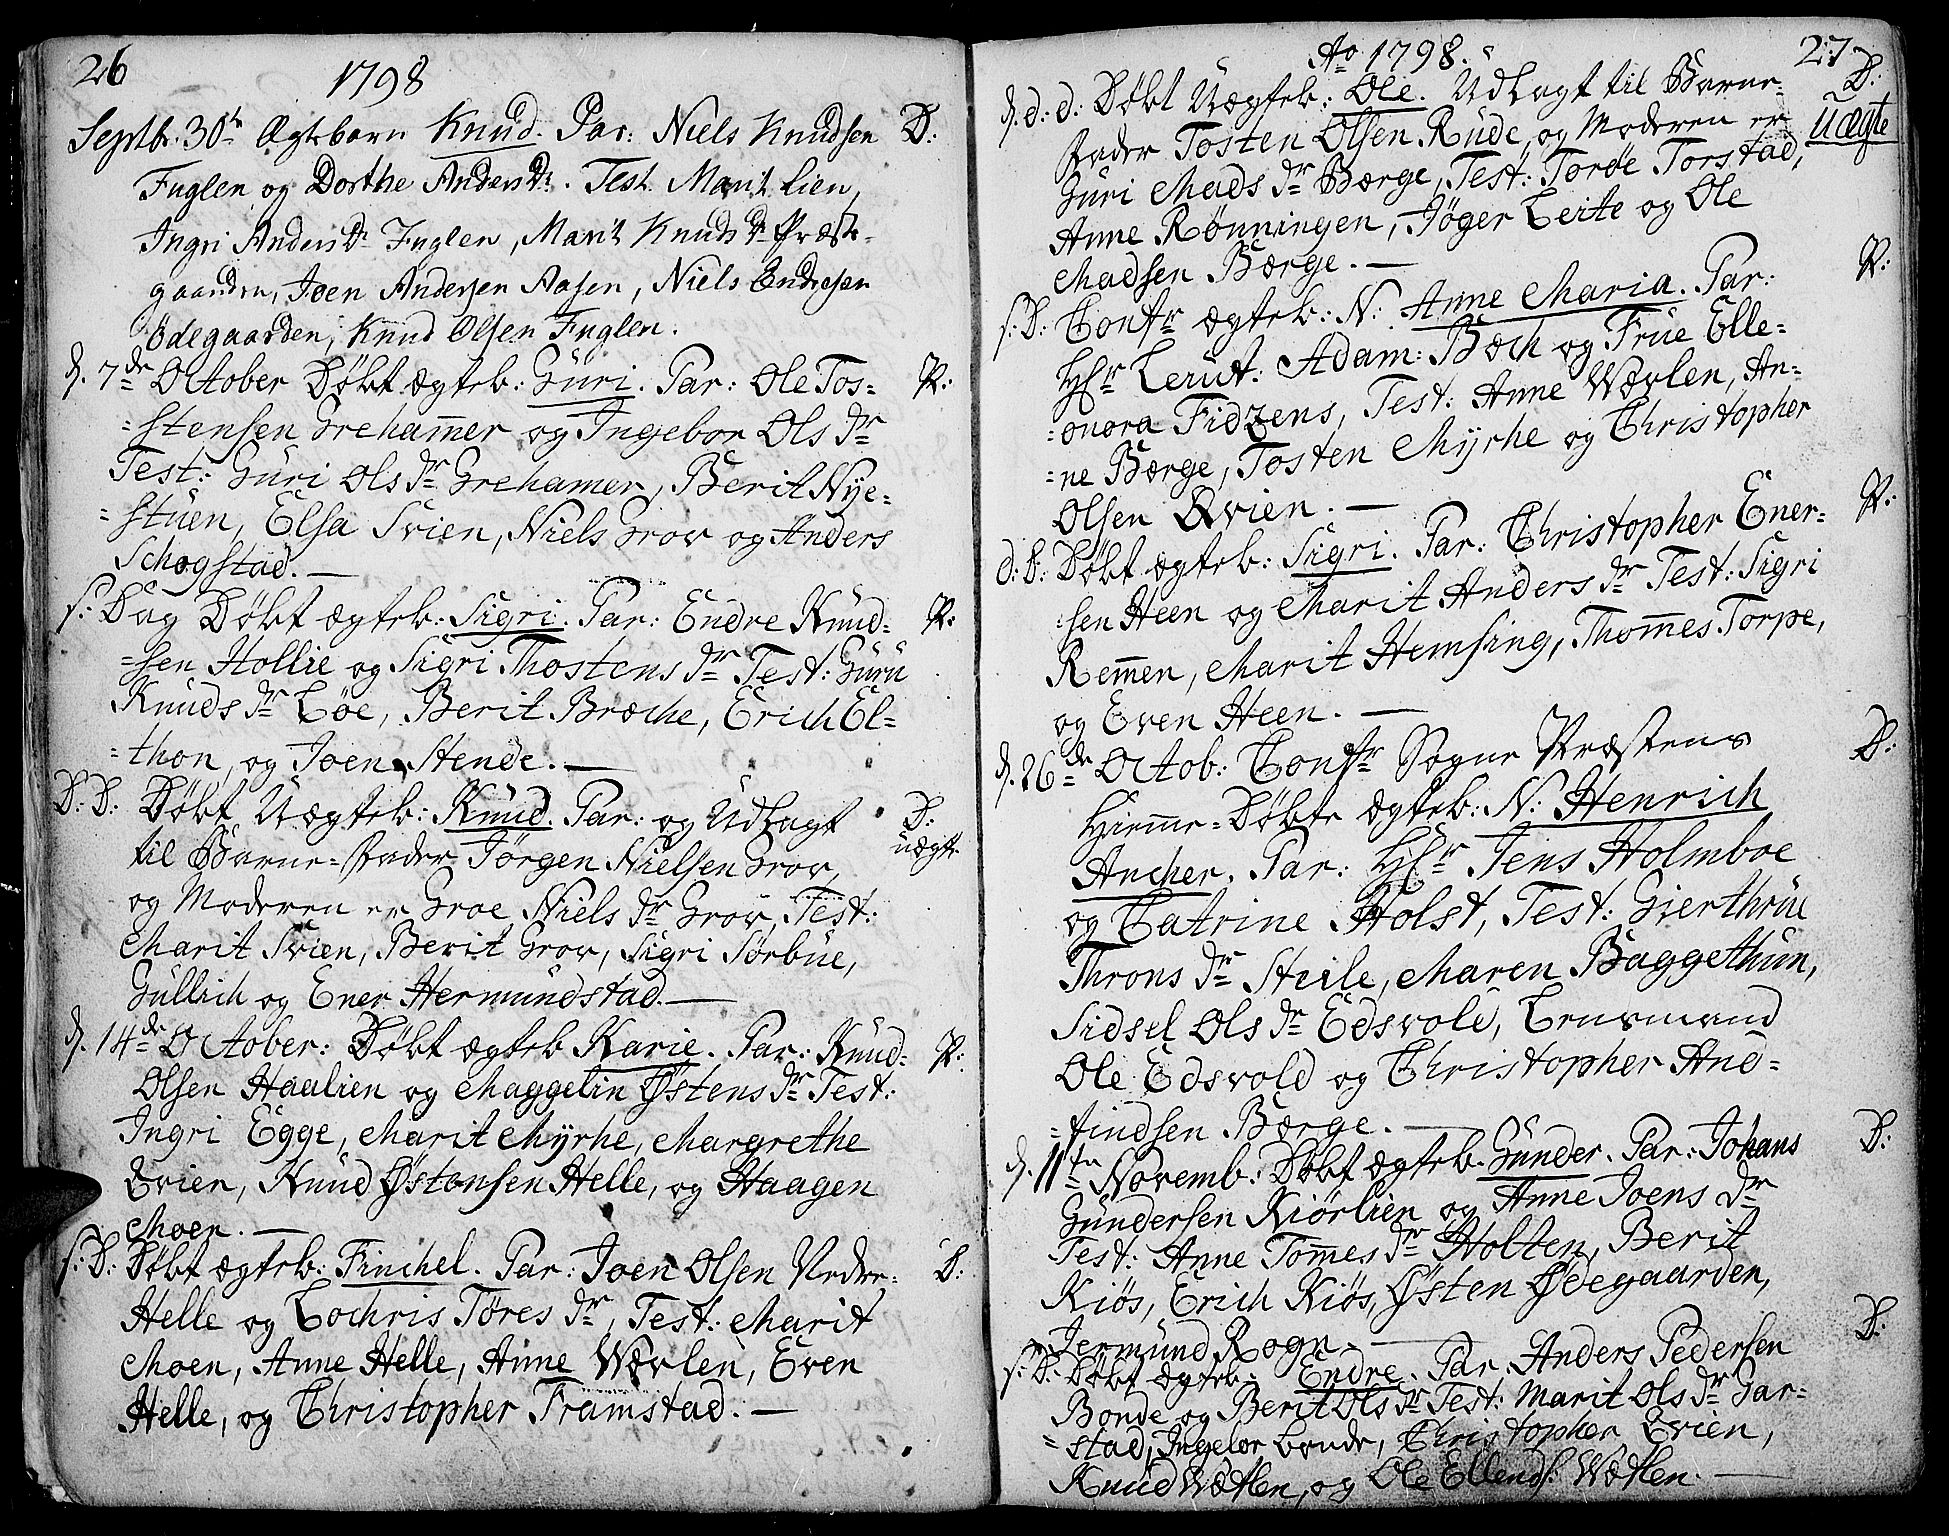 26
1798
Septbr. 30te Ægtebarn Knud. Par: Niels Knudsen D:
Fuglen og Dorthe Anders Dr. Test. Marit Lien,
Ingri Anders Dr Fuglen, Marit Knuds Dr Præste-
gaarden, Joen Andersen Aasen, Niels Endresen
Ödegaarden, Knud Olsen Fuglen.
d. 7de October Döbt ægteb: Guri. Par: Ole Tos= P:
=stensen Grehamer og Ingebor Ols dr
Test: Guri Ols dr Grehamer, Berit Nÿe=
=stuen, Elsa Svien, Niels Grov og Anders
Schogstad. —
s: Dag Döbt ægteb: Sigri. Par: Endre Knud= P:
=sen Hollie og Sigri Thostens dr Test: Guru
Knuds dr Löe, Berit Broche, Erich El=
=thon, og Joen Stende. —
D: D: Döbt Uægteb: Knud. Par: og Udlagt D:
til Barne=Fader Jörgen Nielsen Grov, uægte
og Moderen er Groe Niels dr Grov, Test:
Marit Svien, Berit Grov, Sigri Sörbue,
Gullich og Ener Hermundstad. —
d. 14de October: Döbt ægteb Karie. Par: Knud= P:
Olsen Haalien og Maggelin Östens dr Test:
Ingri Egge, Marit Mÿrhe, Margrethe
Qvien, Knud Östensen Helle, og Haagen
Moen. —
s: D: Döbt ægteb: Finchel. Par: Joen Olsen Nedre= D:
Helle og Lochris Töres dr, Test: Marit
Moen, Anne Helle, Anne Wærlen, Even
Helle, og Christopher Framstad. —
Ao 1798.
27
d. d: d: Döbt Uægteb: Ole. Udlagt til Barne- D:
Fader Tosten Olsen Rude, og Moderen er Uægte
Guri Mads dr Børge, Test: Tordε Torstad,
Anne Rönningen, Jöger Leite og Ole
Madsen Børge. —
s: D: Confr ægteb: N: Anne Maria. Par: P:
Hr Leiut: Adam: Boch og Frue Elle=
=onora Fidzens, Test: Anne Wærlen, An=
=ne Børge, Tosten Mÿrhe og Christopher
Olsen Qvien. —
d: D: Döbt ægteb: Sigri. Par: Christopher Ener= P:
sen Heen og Marit Anders dr Test: Sigri
Remen, Marit Hemsing, Thomes Torpe,
og Even Heen. —
d. 26de Octob: Confr Sogne Præstens D:
Hiemme=Döbte ægteb: N: Henrich
Ancher. Par: Hr Jens Holmboe
og Catrine Holst, Test: Gierthrue
Throns dr Steile, Maren Baggethun,
Sidsel Ols dr Edsvold, Lensmand
Ole Edsvold og Christopher And=
=findsen Børge. —
d. 11te Novemb: Döbt ægteb. Gunder. Par: Johans D:
Gundersen Kiörlien og Anne Joens dr
Test: Anne Tomes dr Holten, Berit
Kiös, Erich Kiös, Östen Ödegaarden,
Jermund Rogn. —
s: D: Döbt ægteb: Endre. Par. Anders Pedersen D:
Bonde og Berit Ols dr Test: Marit Ols dr Gar=
=stad, Ingebor Bonde, Christopher Qvien,
Knud Wæthen, og Ole Ellends: Wæthen. —